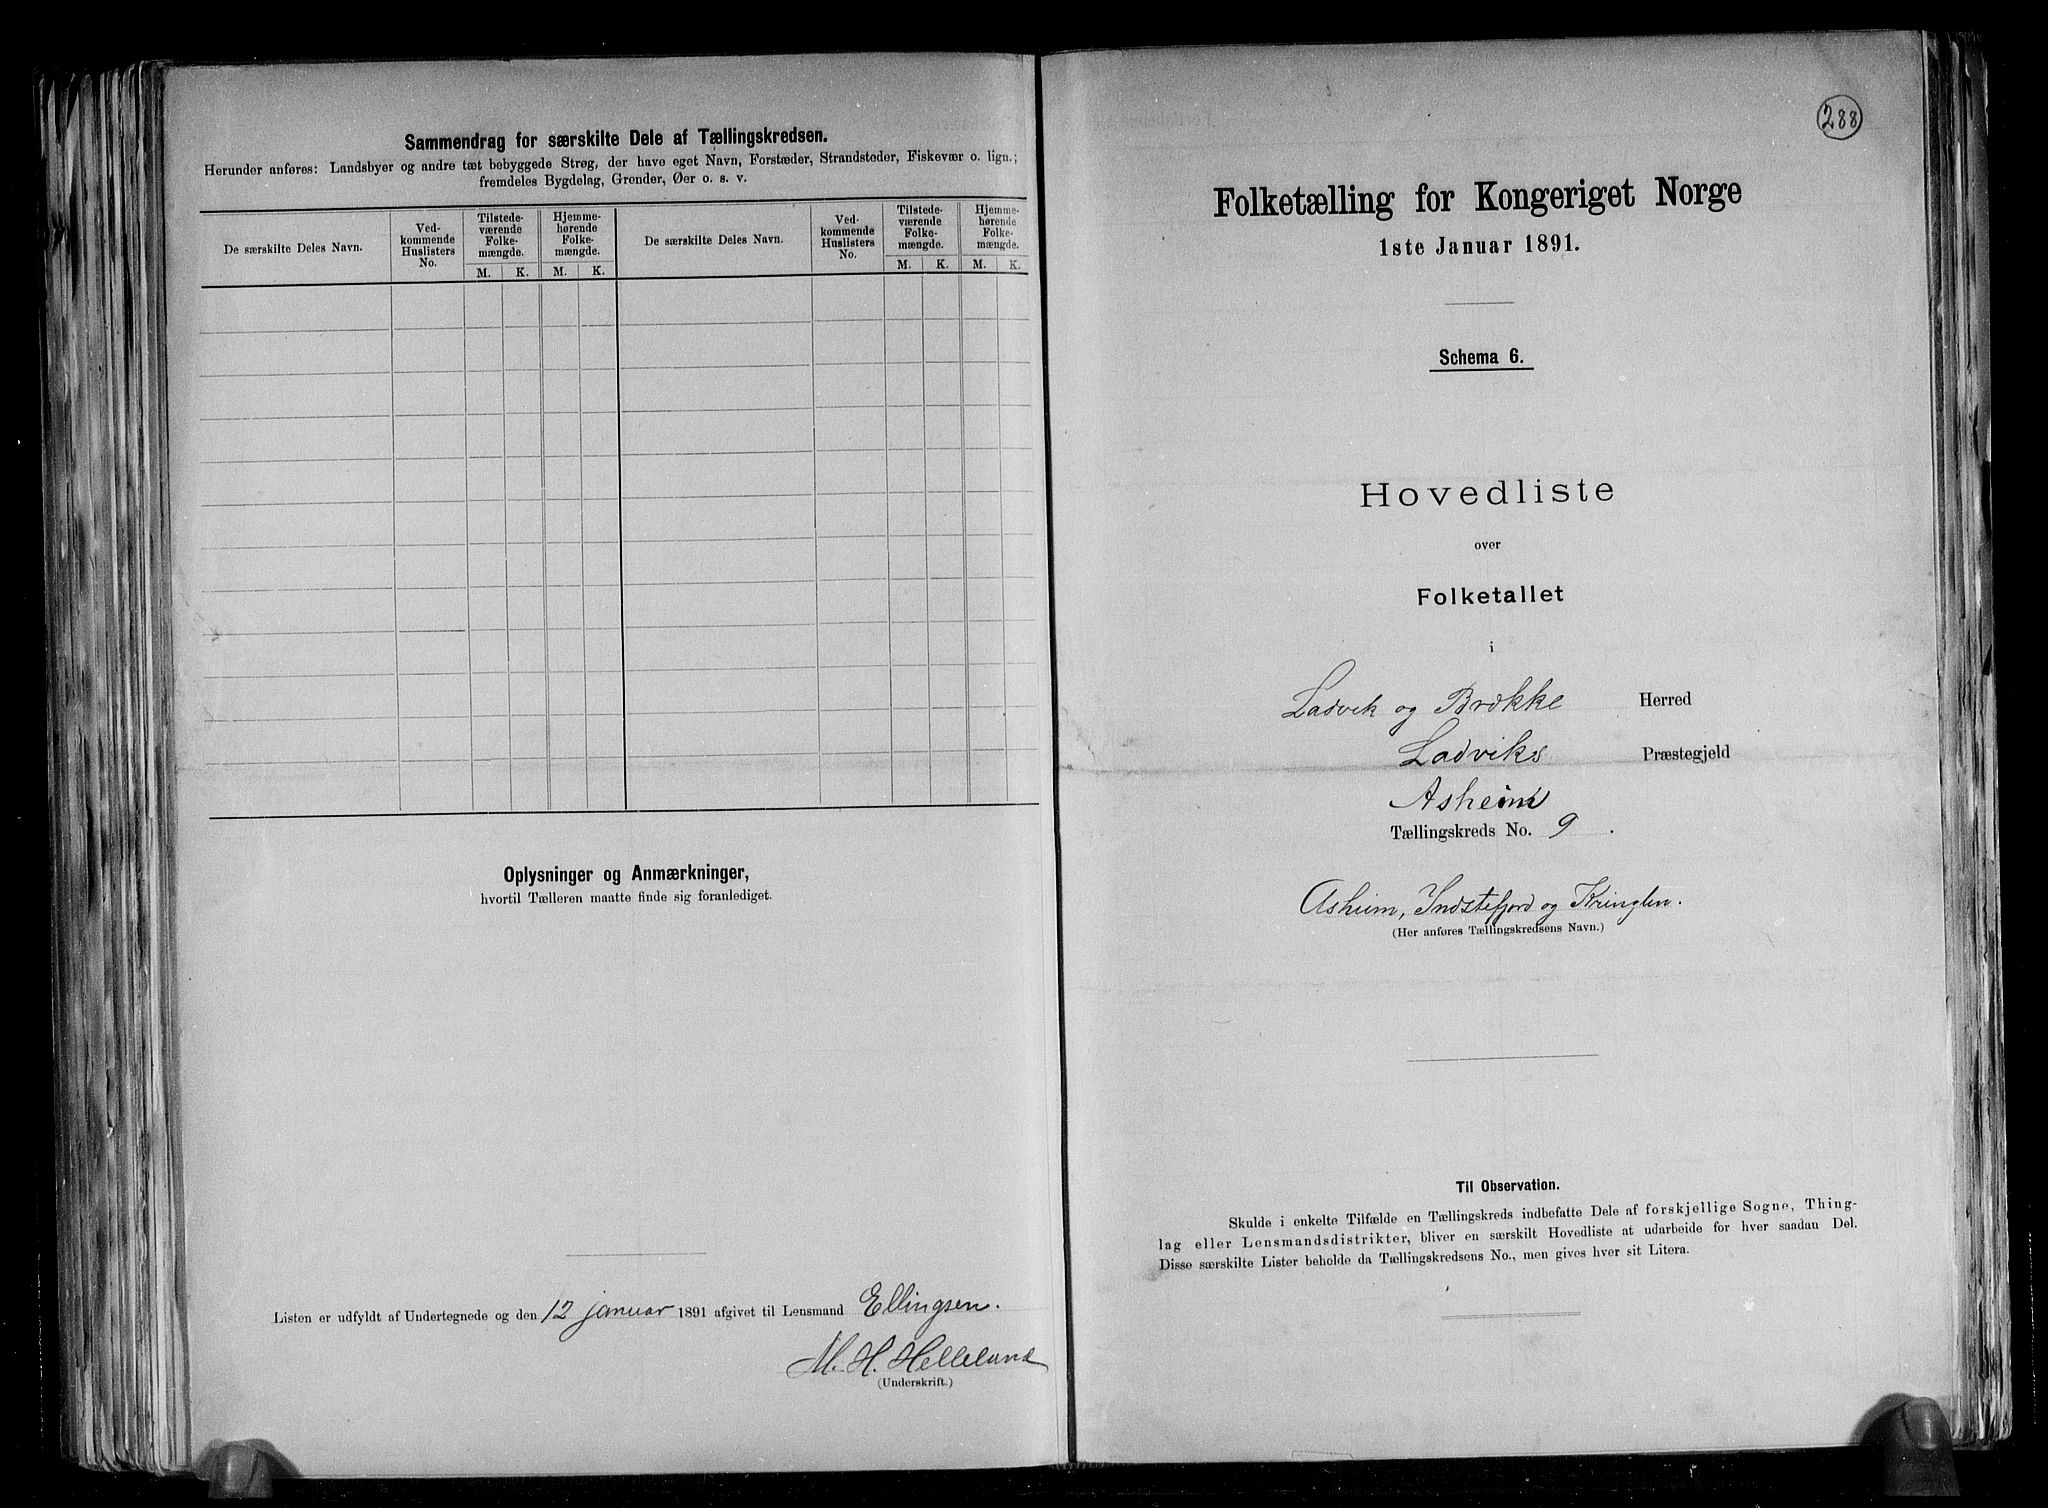 Sammendrag for særskilte Dele af Tællingskredsen.
Herunder anføres: Landsbyer og andre tæt bebyggede Strøg, der have eget Navn, Forstæder, Strandsteder, Fiskevær o. lign.;
fremdeles Bygdelag, Grender, Øer o. s. v.
De særskilte Deles Navn.
Ved-
kommende
Huslisters
No.
Tilstede-
værende
Folke-
mængde.
M. K.
Hjemme-
hørende
Folke-
mængde.
M. K.
De særskilte Deles Navn.
Ved-
kommende
Huslisters
No.
Tilstede-
værende
Folke-
mængde.
M. K.
Hjemme-
hørende
Folke-
mængde.
M. K.
Oplysninger og Anmærkninger,
hvortil Tælleren maatte finde sig foranlediget.
Listen er udfyldt af Undertegnede og den 12 januar 1891 afgivet til Lensmand Ellingsen.
M. H. Helleland
(Underskrift.)
288
Folketælling for Kongeriget Norge
1ste Januar 1891.
Schema 6.
Hovedliste
over
Folketallet
i
Ladvik og Brække Herred
Ladviks Præstegjeld
Asheim
Tællingskreds No. 9.
Asheim, Indstefjord og Kringlen.
(Her anføres Tællingskredsens Navn.)
Til Observation.
Skulde i enkelte Tilfælde en Tællingskreds indbefatte Dele af forskjellige Sogne, Thing-
lag eller Lensmandsdistrikter, bliver en særskilt Hovedliste at udarbeide for hver saadan Del.
Disse særskilte Lister beholde da Tællingskredsens No., men gives hver sit Litera.